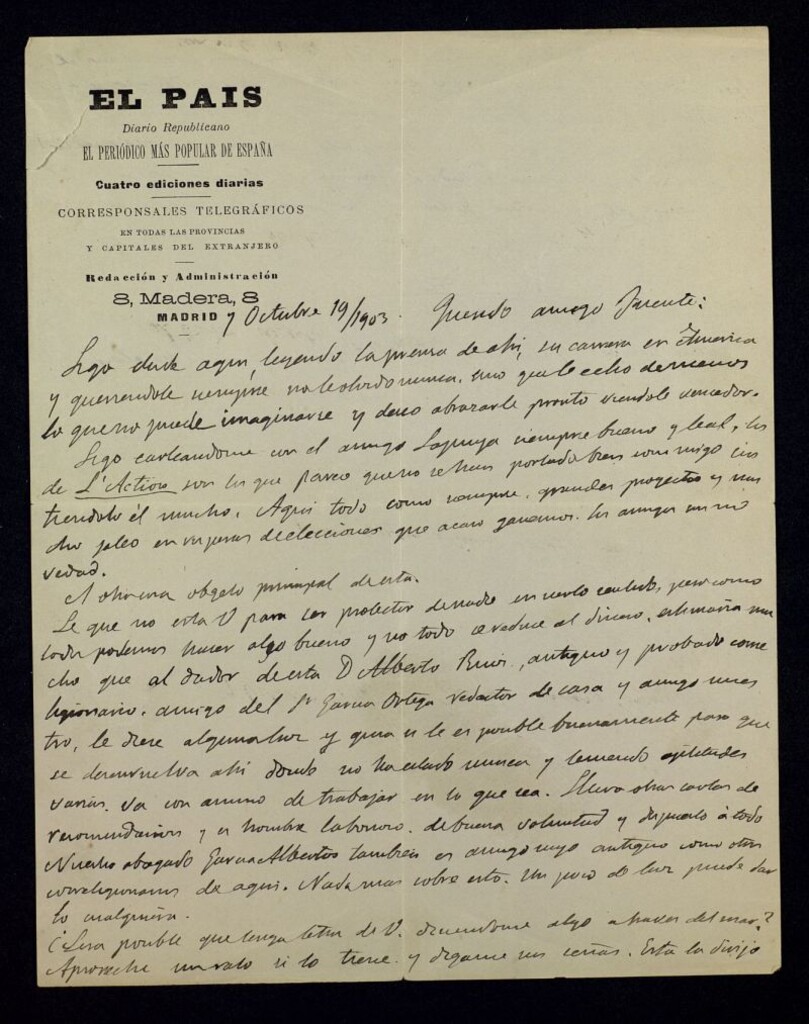 EL PAIS
Diario Republicano
EL PERIÓDICO MÁS POPULAR DE ESPAÑA
Cuatro ediciones diarias
CORRESPONSALES TELEGRÁFICOS
EN TODAS LAS PROVINCIAS
Y CAPITALES DEL EXTRANJERO
Redacción y Administración
8, Madera, 8
MADRID 7 Octubre 19/1903. Querido amigo
Sigo desde aqui, leyendo la prensa de ahi, su carrera en America
y queriendole siempre no le olvido nunca, sino que le echo de menos
lo que no puede imaginarse y deseo abrazarle pronto viendole vencedor.
Sigo carteandome con el amigo Lapuya siempre bueno y leal, los
de L'Action son los que parece que no se han portado bien conmigo
él mucho. Aqui todo como siempre, grandes proyectos y
jaleo en visperas de elecciones que acaso ganemos.
vedad.
A otra cosa objeto principal de esta.
Se que no esta V para ser protector de nadie en cierto sentido, pero como
todos podemos hacer algo bueno y no todo se reduce al dinero, estimaria mu
cho que al dador de esta D Alberto Ruiz, antiguo y probado corre
ligionario, amigo del Sr Garcia Ortega redactor de casa y amigo nues
tro, le diese alguna luz y guia si le es posible buenamente para que
se desenvuelva ahi donde no ha estado nunca y teniendo aptitudes
varias. Va con animo de trabajar en lo que sea. Lleva otras cartas de
recomendacion y es hombre laborioso, de buena voluntad y dispuesto à todo
Nuestro abogado Garcia Albertos tambien es amigo suyo antiguo como otros
correligionarios de aqui. Nada mas sobre esto. Un poco de luz puede dar
lo cualquiera.
¿Sera posible que tenga letra de V. diciendome algo a traves del mar?
Aproveche un rato si lo tiene y digame sus señas. Esta la dirijo